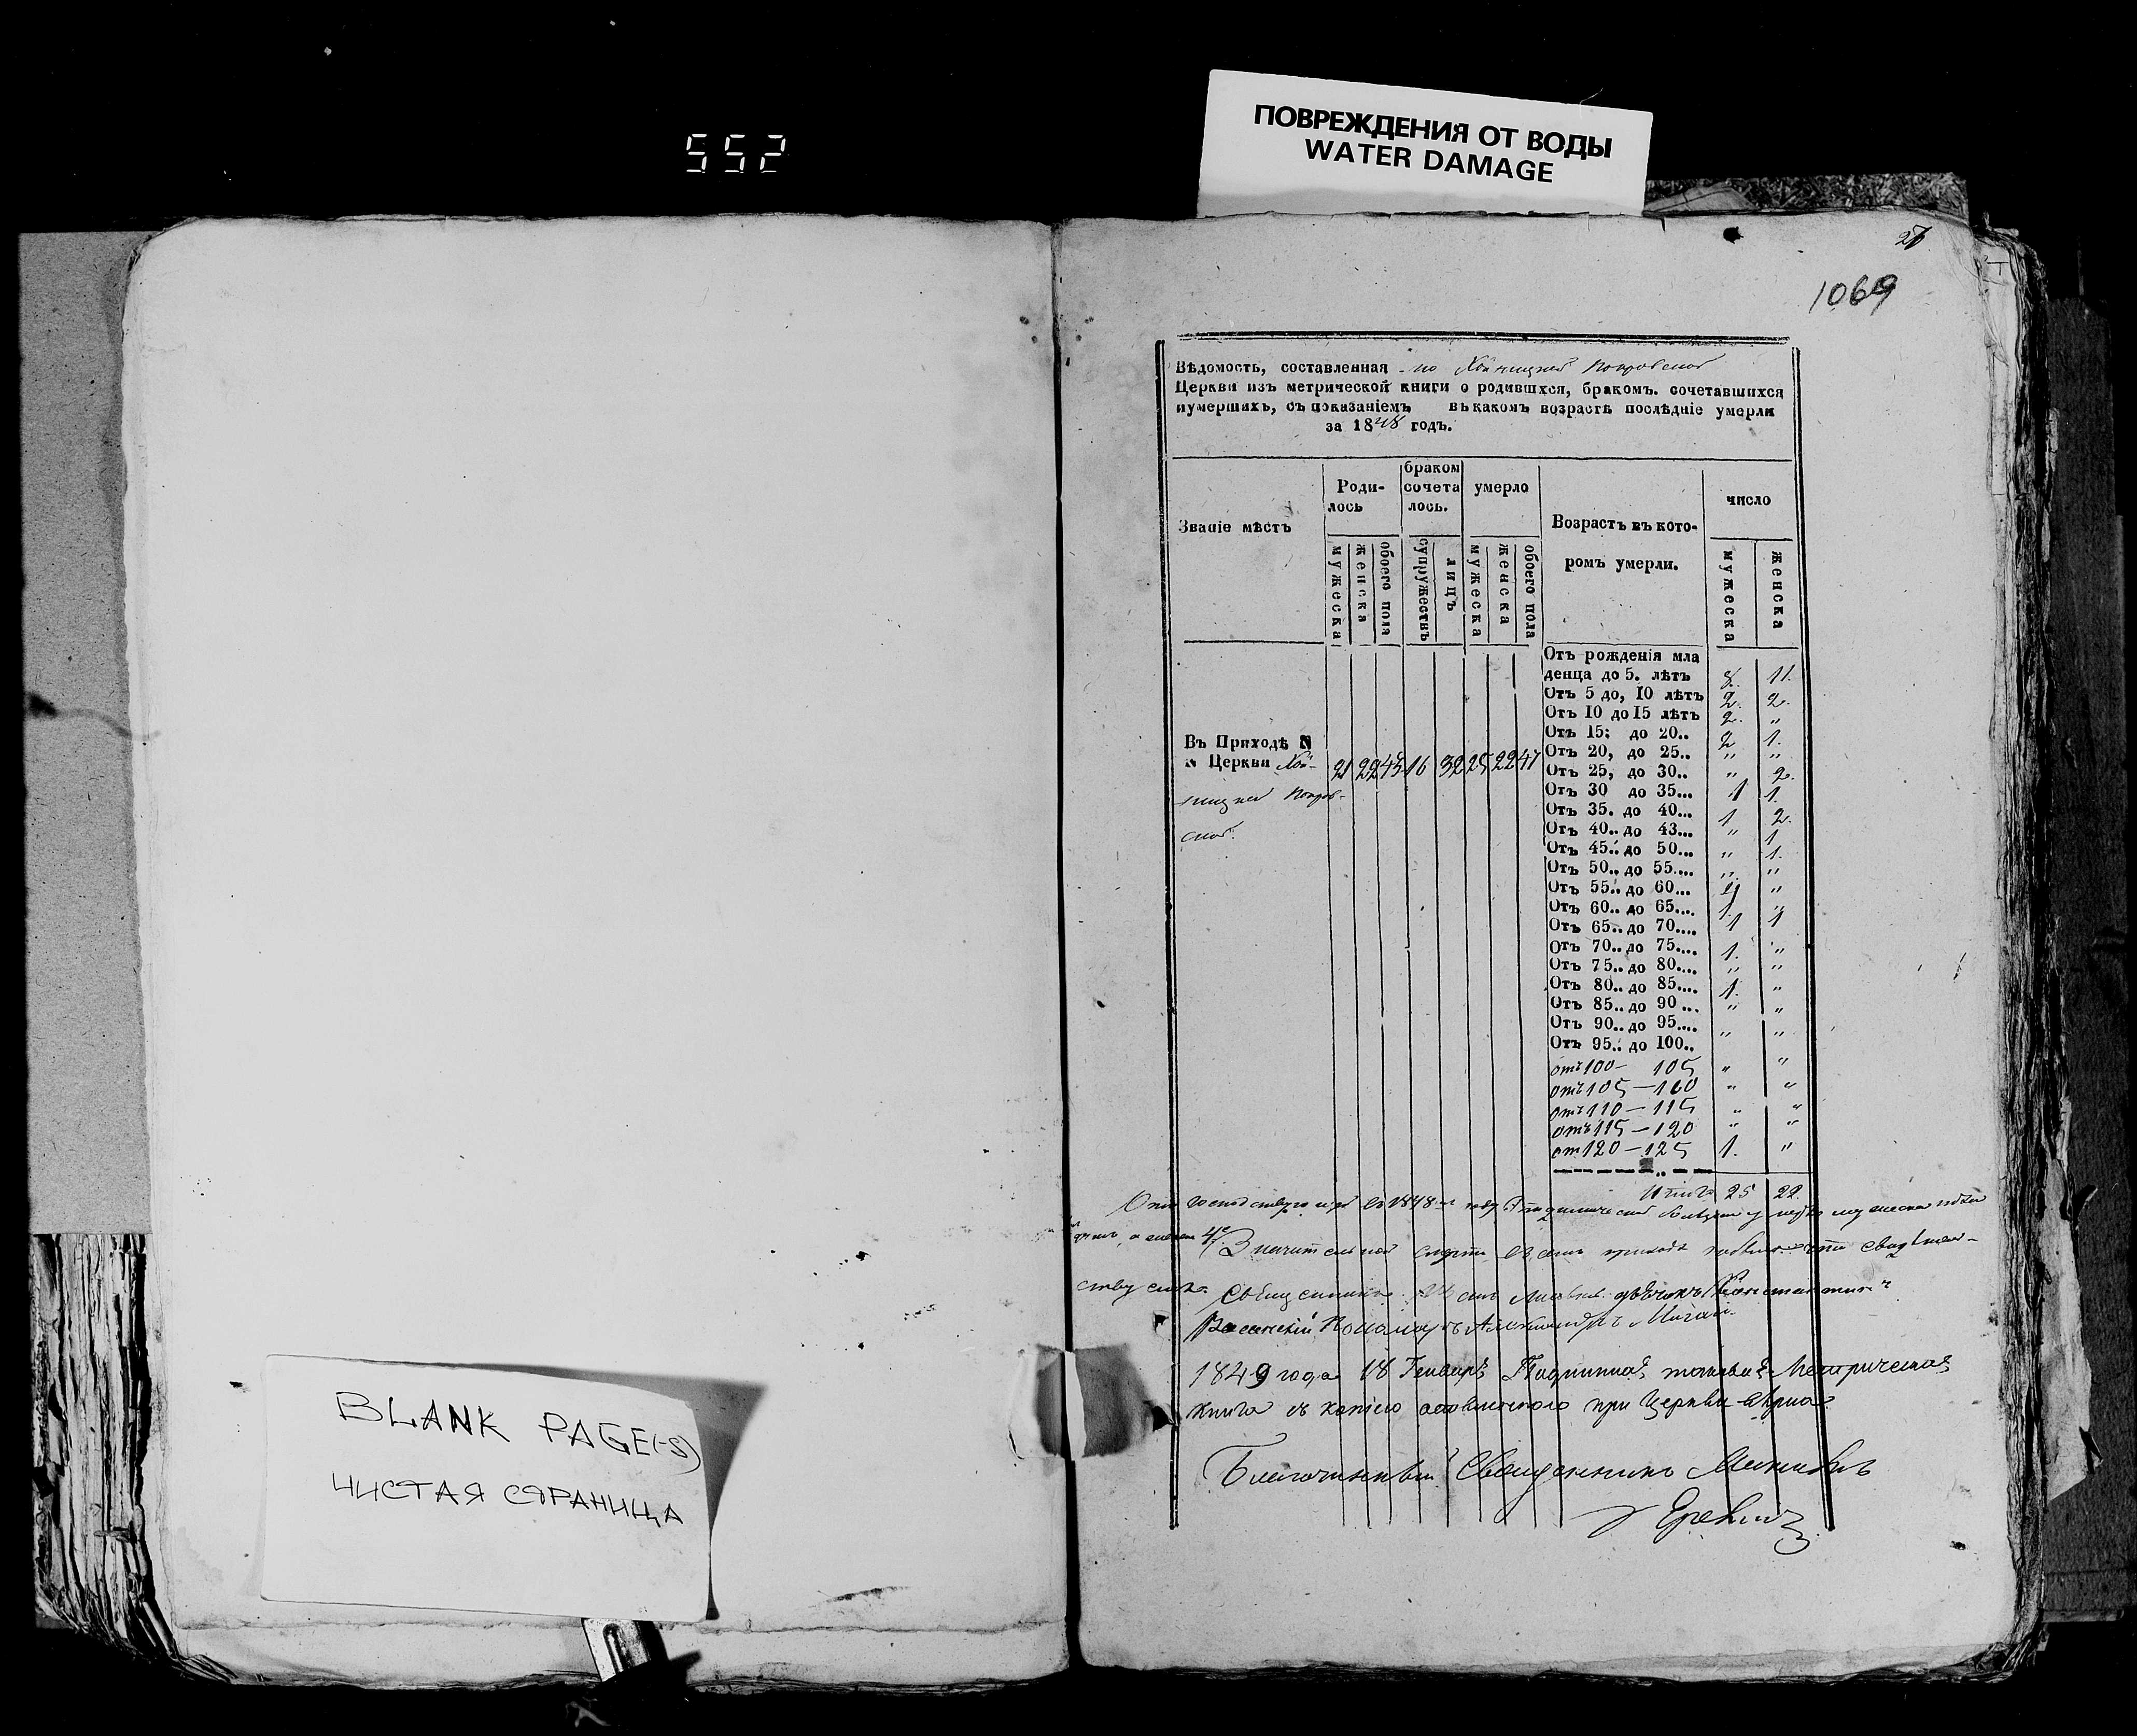 552
ПОВРЕЖДЕНИЯ ОТ ВОДЫ
WATER DAMAGE
1069
Вѣдомость, составленная по Хойницкой Покровской
Церкви изъ метрической книги о родившхся, бракомъ. сочетавшихся
иумершихъ, съ показаніемъ въ какомъ возрастѣ послѣдніе умерли
за 1848 годъ.
Званіе мѣстъ
Роди-
лось
браком
сочета
лось.
умерло
Возрастъ въ кото-
ромъ умерли.
число
мужеска
женска
обоего пола
супружествъ
лицъ
мужеска
женска
обоего пола
мужеска
женска
Отъ рожденія мла
денца до 5. лѣтъ 8. 11.
Отъ 5 до, 10 лѣтъ 2. 2.
Отъ 10 до 15 лѣтъ 2. "
Отъ 15; до 20.. 2 1.
Отъ 20, до 25.. " "
Отъ 25, до 30.. " 2.
Отъ 30 до 35... 1 1.
Отъ 35. до 40... 1 2.
Отъ 40.. до 43... " 1
Отъ 45.. до 50... " 1.
Отъ 50.. до 55.... " "
Отъ 55.. до 60... "
Отъ 60.. до 65.... 1. "
Отъ 65.. до 70.... 1 1
Отъ 70.. до 75.... 1. "
Отъ 75.. до 80.... " "
Отъ 80.. до 85.... 1. "
Отъ 85.. до 90... " "
Отъ 90.. до 95.... " "
Отъ 95.. до 100..
отъ 100 - 105 " "
отъ 105 - 110 " "
отъ 110 - 115 " "
отъ 115 - 120 " "
от 120 - 125 1. "
Въ Приходѣ N
N Церкви Хой-
ницкой Покров-
ской.
21 22 43 16 32 25 22 47
Итого 25 22
въ 1848 году умерло мужеска пола
Значительной смерти въ семъ приходѣ свидѣтель-
ствуемъ. Священникъ дьячокъ Константинъ
Пономарь Александръ
1849 года 18 Генваря Подлинная таковая Метрическая
книга съ копіею оставленною при Церкви вѣрна
Благочинный Священникъ
BLANK PAGE(-S)
ЧИСТАЯ СТРАНИЦА